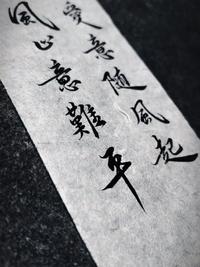 愛意隨風起
風止意難平